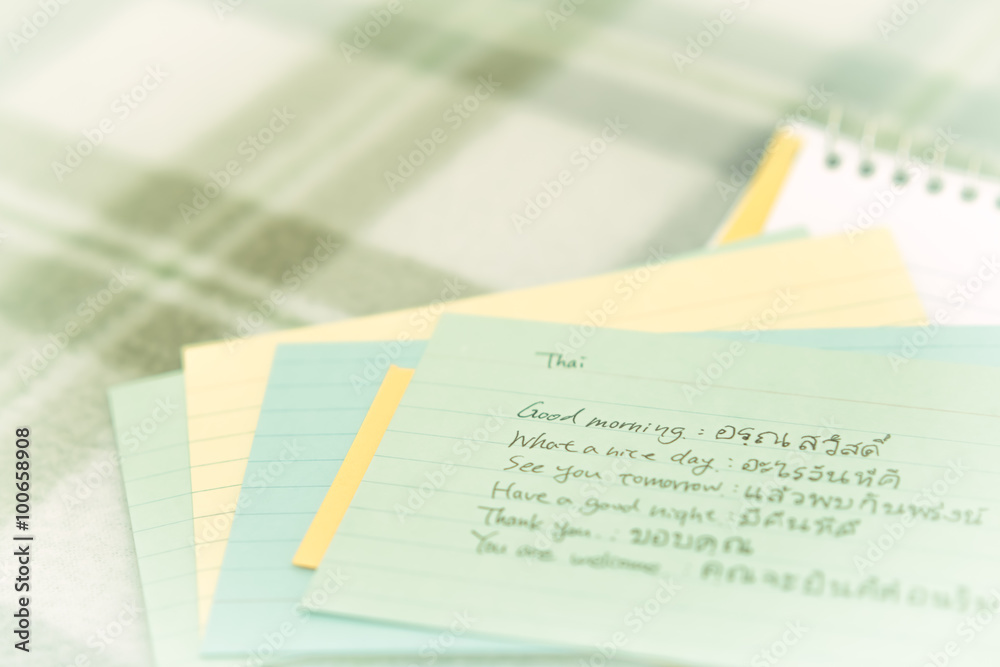 Thai
Good morning : อรุณสวัสดิ์
What a nice day : อะไรวันที่ดี
See you tomorrow : แล้วพบกันพรุ่งนี้
Have a good night : มีคืนที่ดี
Thank you : ขอบคุณ
You are welcome : คุณจะยินดีต้อนรับ
Adobe Stock | #100658908